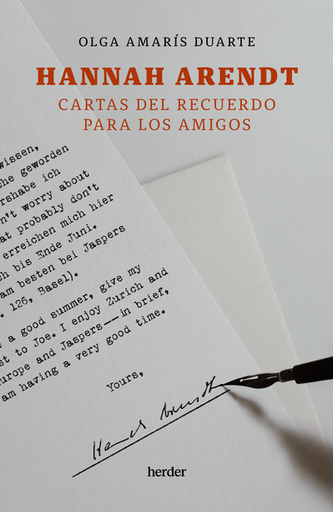 OLGA AMARÍS DUARTE
HANNAH ARENDT
CARTAS DEL RECUERDO
PARA LOS AMIGOS
wissen,
che geworden
rshabe ich
n't worry about
at probably don't
erreichen mich hier
h bis Ende Juni.
am besten bei Jaspers
. 126, Basel).
e a good summer, give my
st to Joe. I enjoy Zurich and
urope and Jaspers—in brief,
am having a very good time.
Yours,
Hannah Arendt
herder